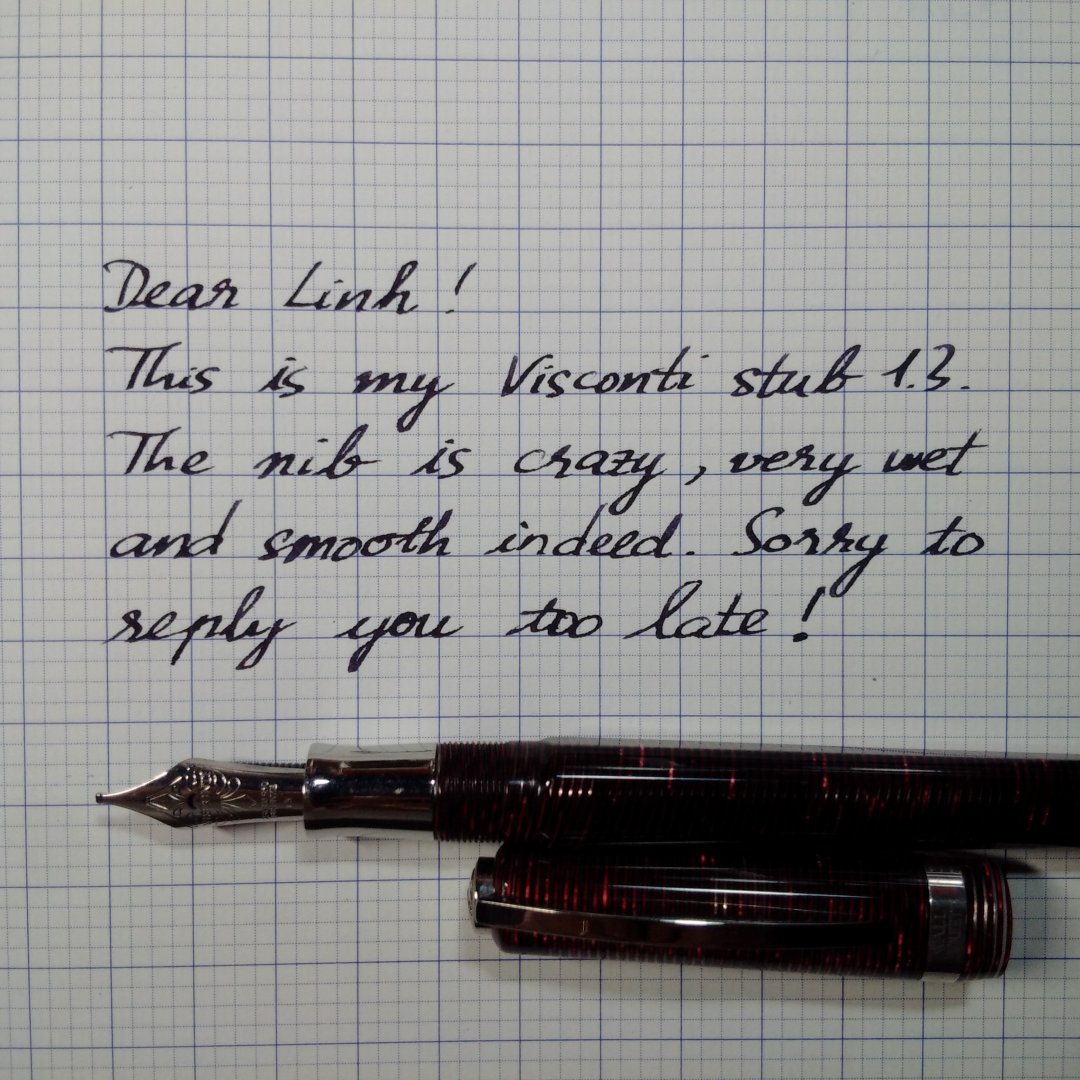 Dear Linh !
This is my Visconti stub 1.3.
The nib is crazy, very wet
and smooth indeed. Sorry to
reply you too late !